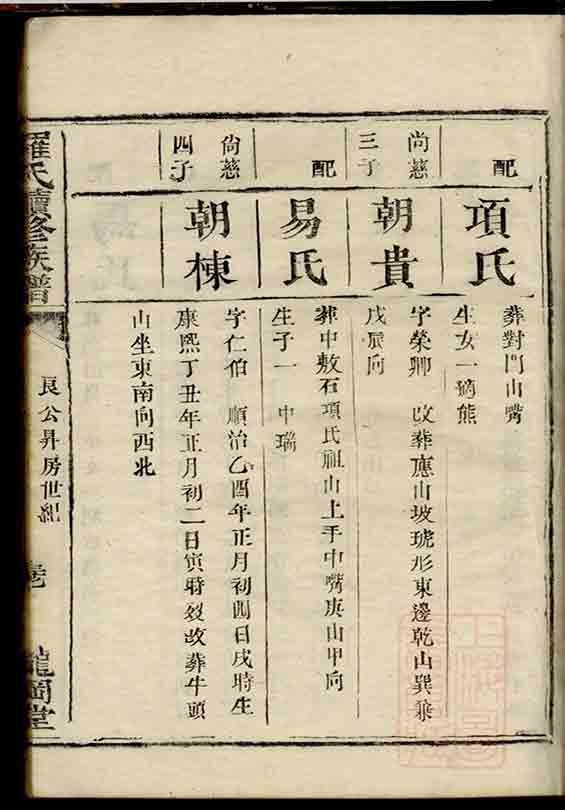 配
項氏
葬對門山嘴
生女一適熊
尚慈
三子
朝貴
字榮卿 改葬應山坡琥形東邊乾山巽兼
戌辰向
配
易氏
葬中敷石項氏祖山上手中嘴庚山甲向
生子一 中瑞
尚慈
四子
朝棟
字仁伯 順治乙酉年正月初四日戌時生
康熙丁丑年正月初二日寅時歿改葬牛頭
山坐東南向西北
羅氏續修族譜
良公昇房世紀
龍岡堂